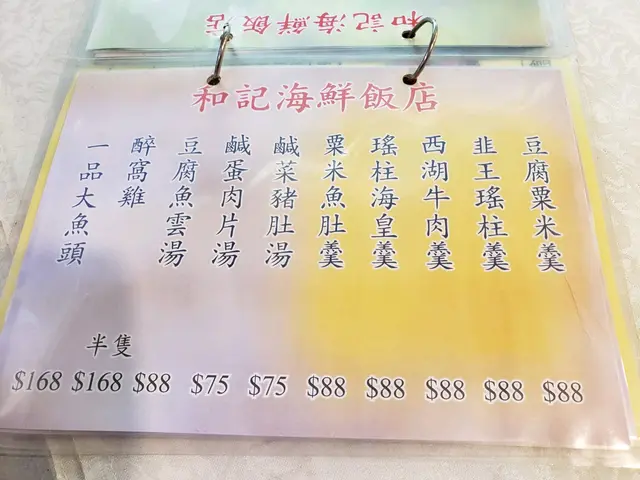 和記海鮮飯店
和記海鮮飯店
豆腐粟米羹
韭王瑤柱羹
西湖牛肉羹
瑤柱海皇羹
粟米魚肚羹
鹹菜豬肚湯
鹹蛋肉片湯
豆腐魚雲湯
醉窩雞
一品大魚頭
半隻
$168 $168 $88 $75 $75 $88 $88 $88 $88 $88